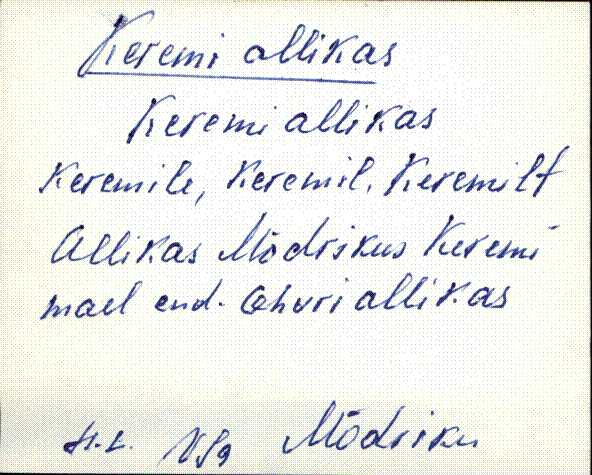 Keremi allikas
Keremi allikas
Keremile, Keremil, Keremilt
Allikas Mõdrikus Keremi
mäel end. Ohvriallikas
Mõdriku